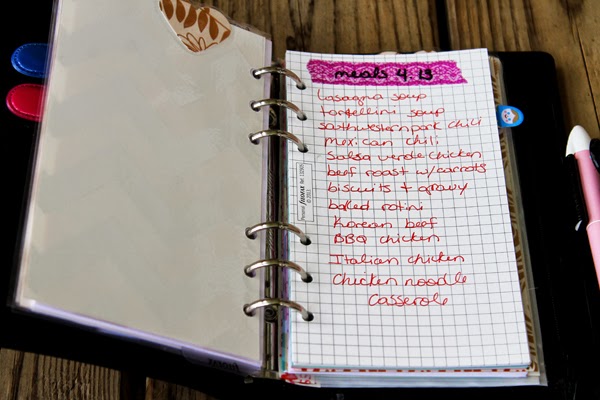 meals 4.13
lasagna soup
tortellini soup
southwestern pork chili
mexican chili
salsa verde chicken
beef roast w/carrots
biscuits + gravy
baked rotini
Korean beef
BBQ chicken
Italian chicken
Chicken noodle
casserole
Personal filofax